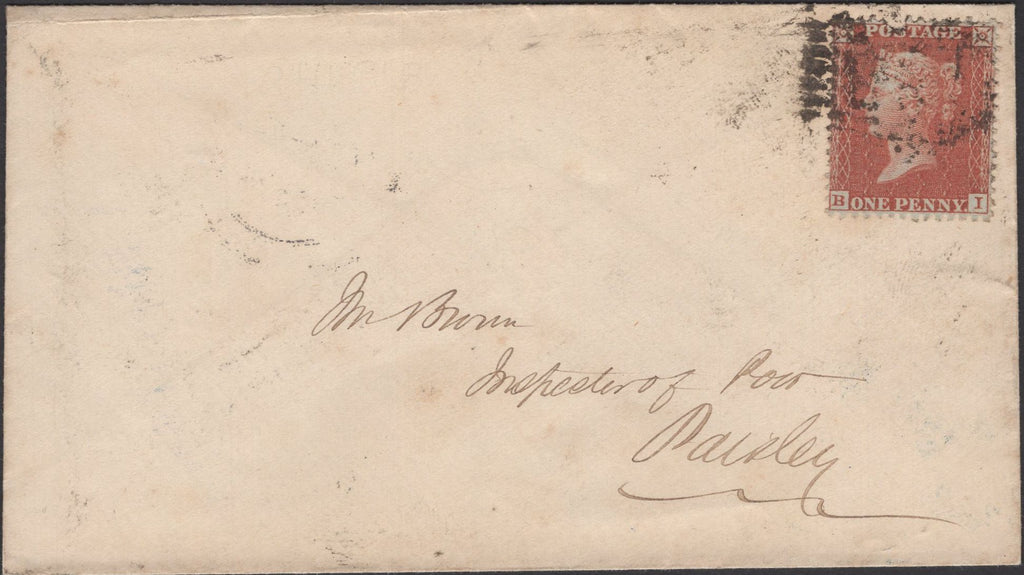 POSTAGE
B ONE PENNY I
Mr Brown
Inspector of Poor
Paisley